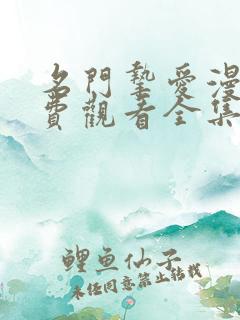 名門摯愛漫
費觀看全集
鲤鱼仙子
未经同意禁止转载